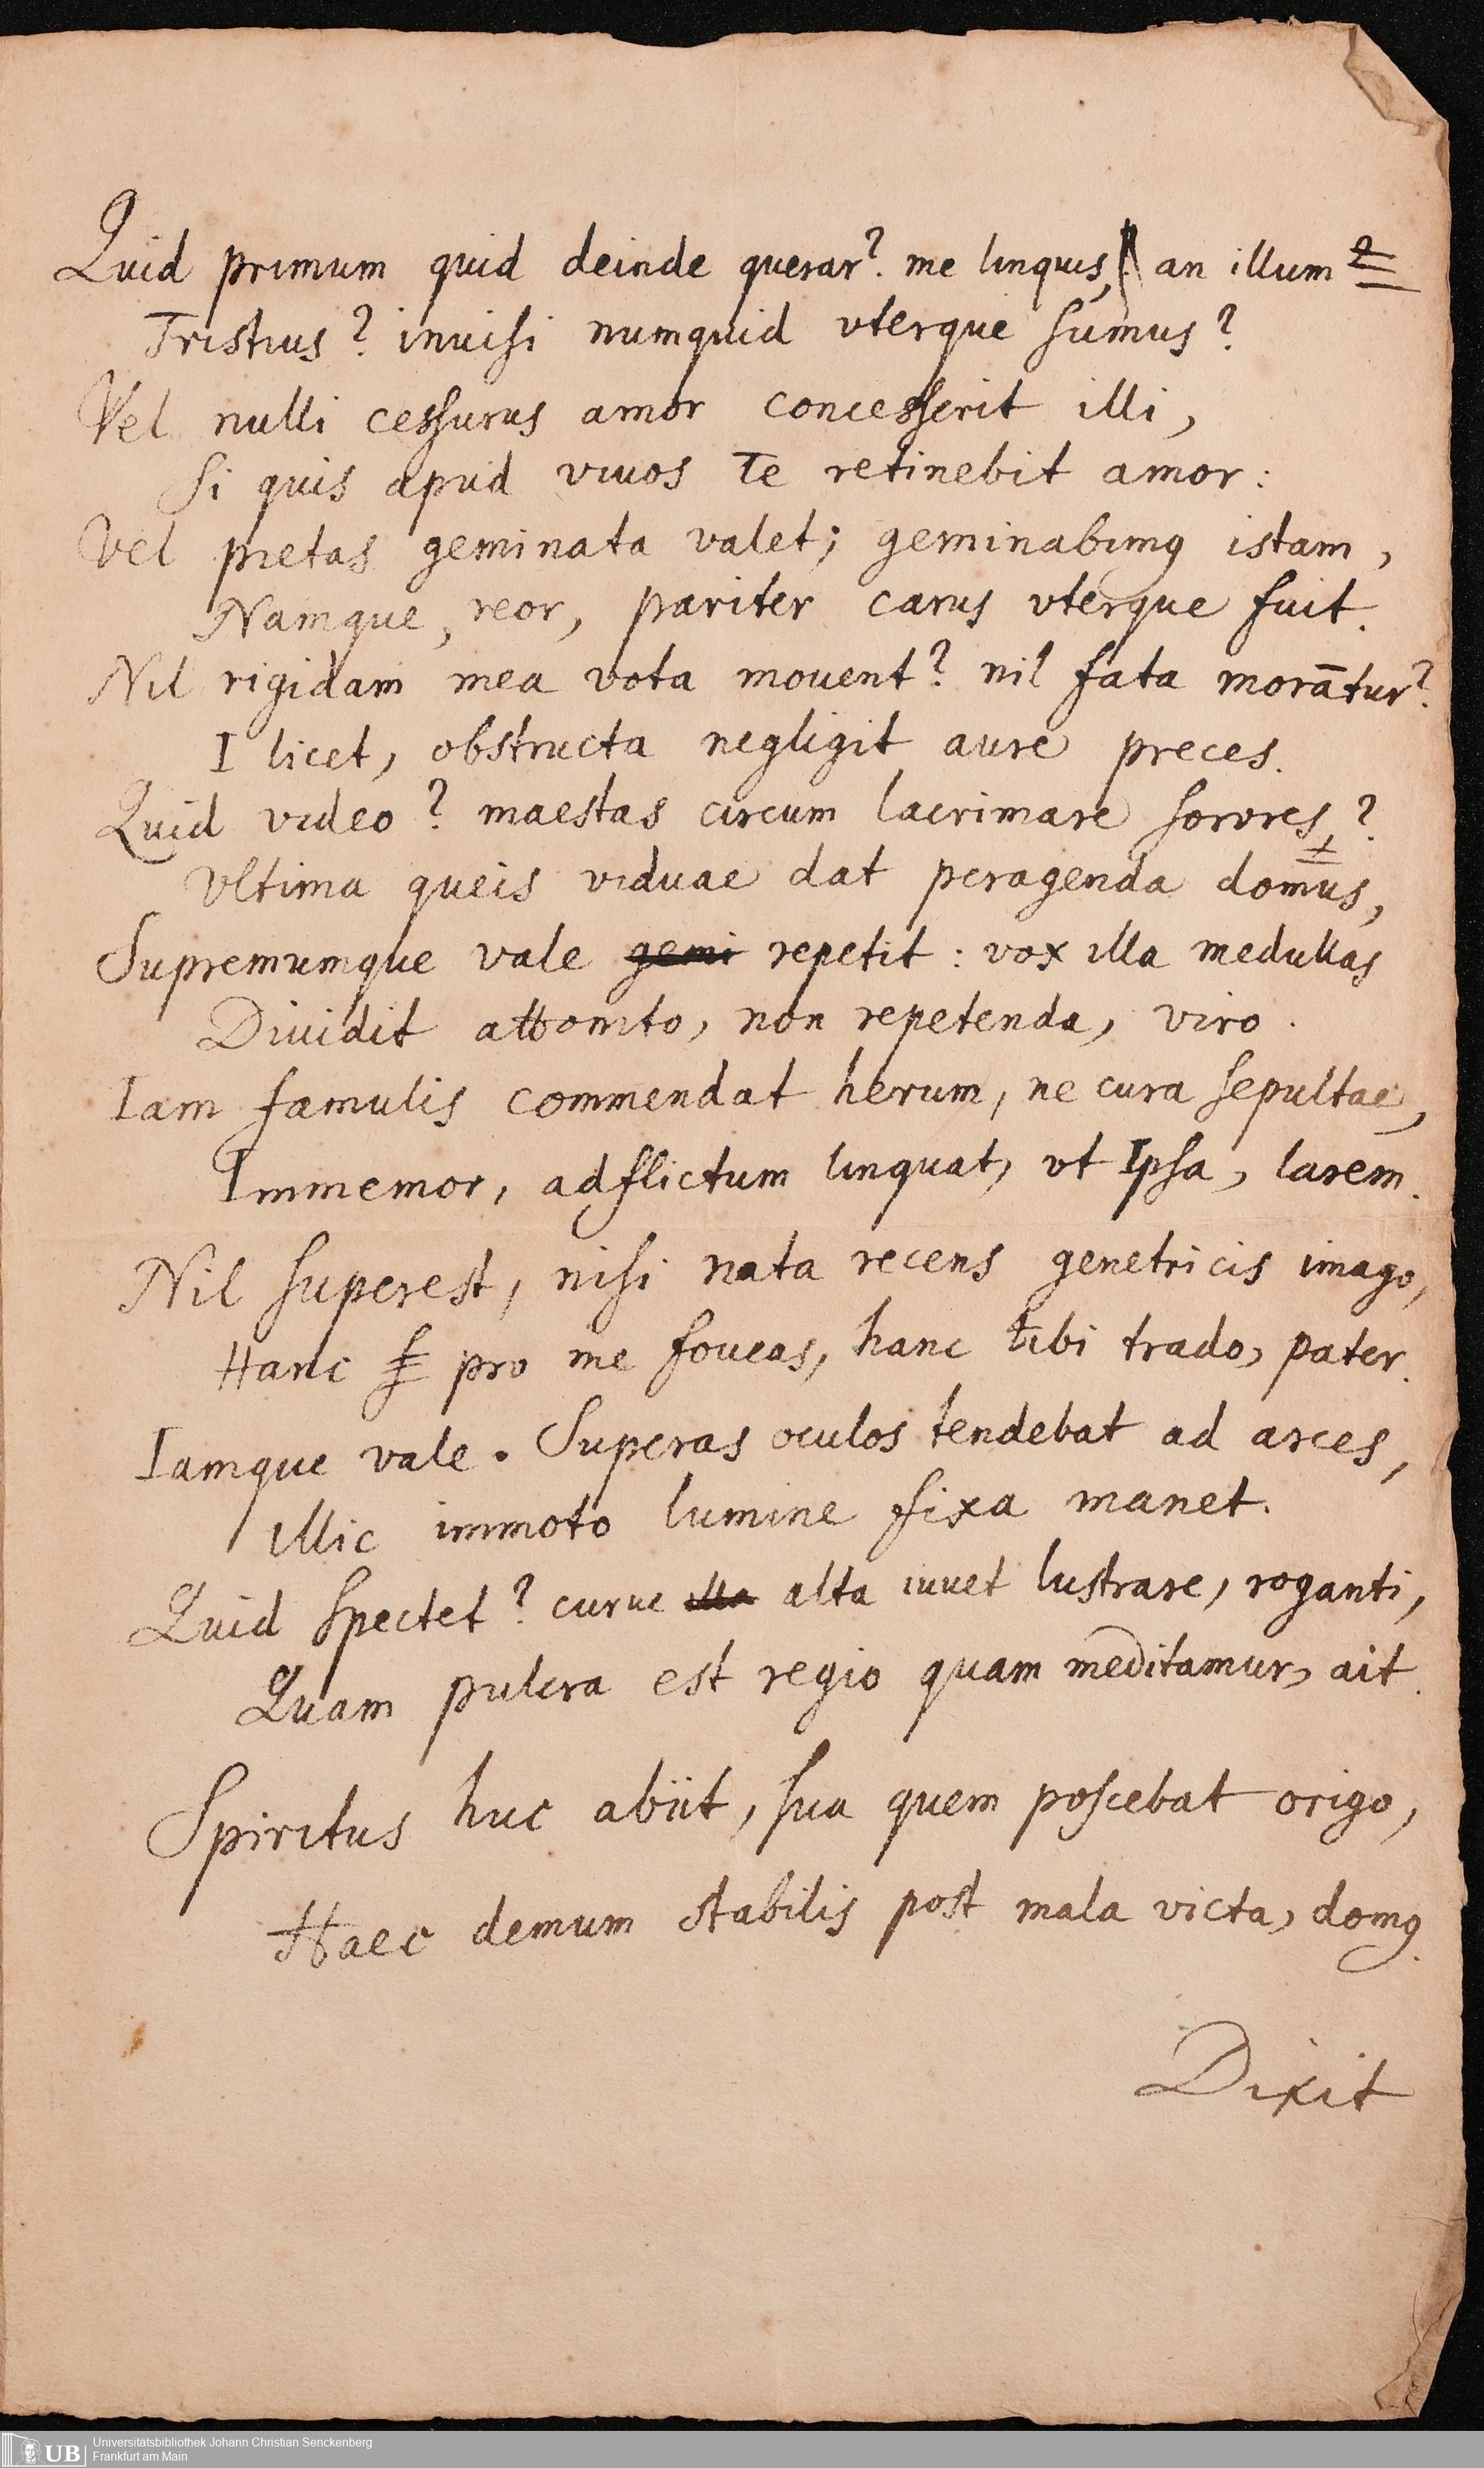 Quid primum quid deinde querar? me linquis, an illum
Tristius? inuisi numquid vterque sumus?
Vel nulli cessurus amor concesserit illi,
Si quis apud viuos Te retinebit amor:
Vel pietas geminata valet; geminabimꝰ istam,
Namque, reor, pariter carus vterque fuit.
Nil rigidam mea vota mouent? nil fata morātur?
I licet, obstructa negligit aure preces.
Quid video? maestas circum lacrimare sorores,?
Vltima queis viduae dat peragenda domus,
Supremumque vale gemi repetit: vox illa medullas
Diuidit attonito, non repetenda, viro.
Iam famulis commendat herum, ne cura sepultae,
Immemor, adflictum linquat, vt Ipsa, larem.
Nil superest, nisi nata recens genetricis imago,
Hanc pro me foueas, hanc tibi trado, pater.
Iamque vale. Superas oculos tendebat ad arces,
illic immoto lumine fixa manet.
Quid spectet? curue illa alta iuuet lustrare, roganti,
Quam pulcra est regio quam meditamur, ait.
Spiritus huc abiit, sua quem poscebat origo,
Haec demum stabilis post mala victa, domꝰ.
Dixit
UB Universitätsbibliothek Johann Christian Senckenberg
Frankfurt am Main